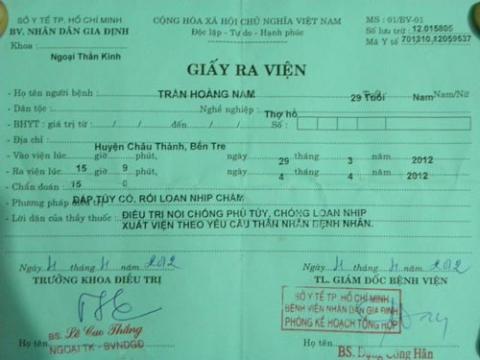 SỞ Y TẾ TP. HỒ CHÍ MINH
BV. NHÂN DÂN GIA ĐỊNH
Khoa :
Ngoại Thần Kinh
CỘNG HÒA XÃ HỘI CHỦ NGHĨA VIỆT NAM
Độc lập - Tự do - Hạnh phúc
MS : 01/BV-01
Số lưu trữ : 12.015805
Mã Y tế 701310.12059537
GIẤY RA VIỆN
- Họ tên người bệnh : TRẦN HOÀNG NAM 29 Tuổi Nam Nam/Nữ
- Dân tộc : Nghề nghiệp : Thợ hồ
- BHYT : giá trị từ : / / đến / / Số :
- Địa chỉ : Huyện Châu Thành, Bến Tre
- Vào viện lúc 15 giờ 9 phút, ngày 29 tháng 3 năm 2012
- Ra viện lúc 15 giờ 0 phút, ngày 4 tháng 4 năm 2012
- Chẩn đoán : DẬP TỦY CỔ, RỐI LOẠN NHỊP CHẬM
- Phương pháp điều trị : ĐIỀU TRỊ NỘI CHỐNG PHÙ TỦY, CHỐNG LOẠN NHỊP
- Lời dặn của thầy thuốc : XUẤT VIỆN THEO YÊU CẦU THÂN NHÂN BỆNH NHÂN.
Ngày 4 tháng 4 năm 2012
TRƯỞNG KHOA ĐIỀU TRỊ
BS. Lê Cao Thăng
NGOẠI TK - BVNDGĐ
Ngày 4 tháng 4 năm 2012
TL. GIÁM ĐỐC BỆNH VIỆN
SỞ Y TẾ TP. HỒ CHÍ MINH
BỆNH VIỆN NHÂN DÂN GIA ĐỊNH
PHÒNG KẾ HOẠCH TỔNG HỢP